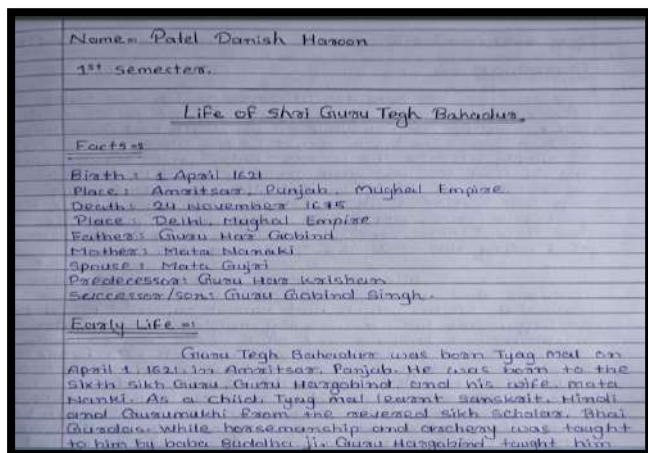 Name= Patel Danish Haroon
1st semester.
Life of Shri Guru Tegh Bahadur.
Facts =:
Birth : 1 April 1621
Place : Amritsar, Punjab, Mughal Empire
Death : 24 November 1675
Place : Delhi, Mughal Empire
Father : Guru Har Gobind
Mother : Mata Nanaki
Spouse : Mata Gujri
Predecessor: Guru Har Krishan
Successor/son: Guru Gobind Singh.
Early Life =:
Guru Tegh Bahadur was born Tyag mal on
April 1, 1621, in Amritsar, Panjab. He was born to the
Sixth Sikh Guru, Guru Hargobind, and his wife, mata
Nanki. As a child, Tyag mal learnt Sanskrit, Hindi
and Gurumukhi from the revered Sikh Scholar, Bhai
Gurdas. While horsemanship and archery was taught
to him by baba Buddha ji, Guru Hargobind taught him